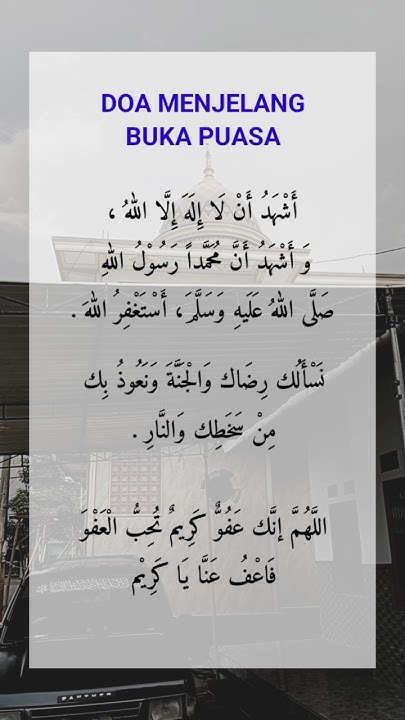 DOA MENJELANG
BUKA PUASA
أَشْهَدُ أَنْ لَا إِلَهَ إِلَّا اللهُ ،
وَ أَشْهَدُ أَنَّ مُحَمَّداً رَسُوْلُ اللهِ
صَلَّى اللهُ عَلَيهِ وَسَلَّمَ، أَسْتَغْفِرُ اللهَ .
نَسْأَلُك رِضَاك وَالْجَنَّةَ وَنَعُوذُ بِك
مِنْ سَخَطِك وَالنَّارِ .
اللَّهُمَّ إنَّك عَفُوٌّ كَرِيمٌ تُحِبُّ الْعَفْوَ
فَاعْفُ عَنَّا يَا كَرِيْم
PANTHER